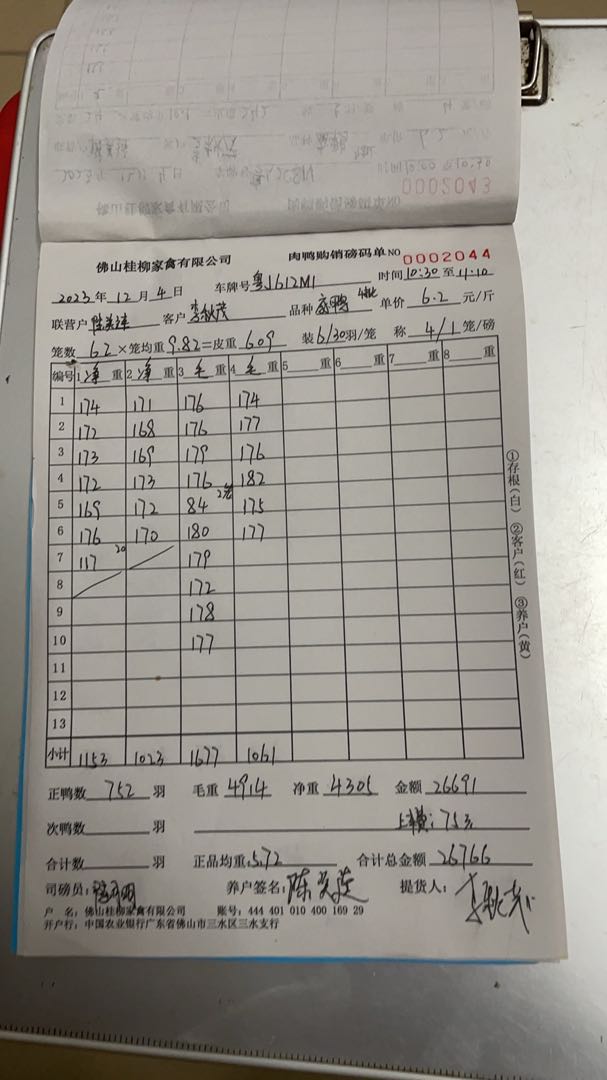 0002043
佛山桂柳家禽有限公司 肉鸭购销磅码单 NO 0002044
2023年12月4日 车牌号 粤J612M1 时间 10:30 至 11:10
联营户 客户 李秋茂 品种 单价 6.2 元/斤
笼数 62 × 笼均重 9.82 = 皮重 609 装 6/30 羽/笼 称 4/1 笼/磅
编号 1 净 重 2 净 重 3 毛 重 4 毛 重 5 重 6 重 7 重 8 重
1 174 171 176 174
2 172 168 176 177
3 173 169 179 176
4 172 173 176 182
5 169 172 84 175
6 176 170 180 177
7 117 20 179
8 172
9 178
10 177
11
12
13
小计 1153 1023 1677 1061
①存根(白) ②客户(红) ③养户(黄)
正鸭数 752 羽 毛重 4914 净重 4305 金额 26691
次鸭数 羽 753
合计数 羽 正品均重 5.72 合计总金额 26766
司磅员: 养户签名: 陈 提货人:
户 名: 佛山桂柳家禽有限公司 账号: 444 401 010 400 169 29
开户行: 中国农业银行广东省佛山市三水区三水支行